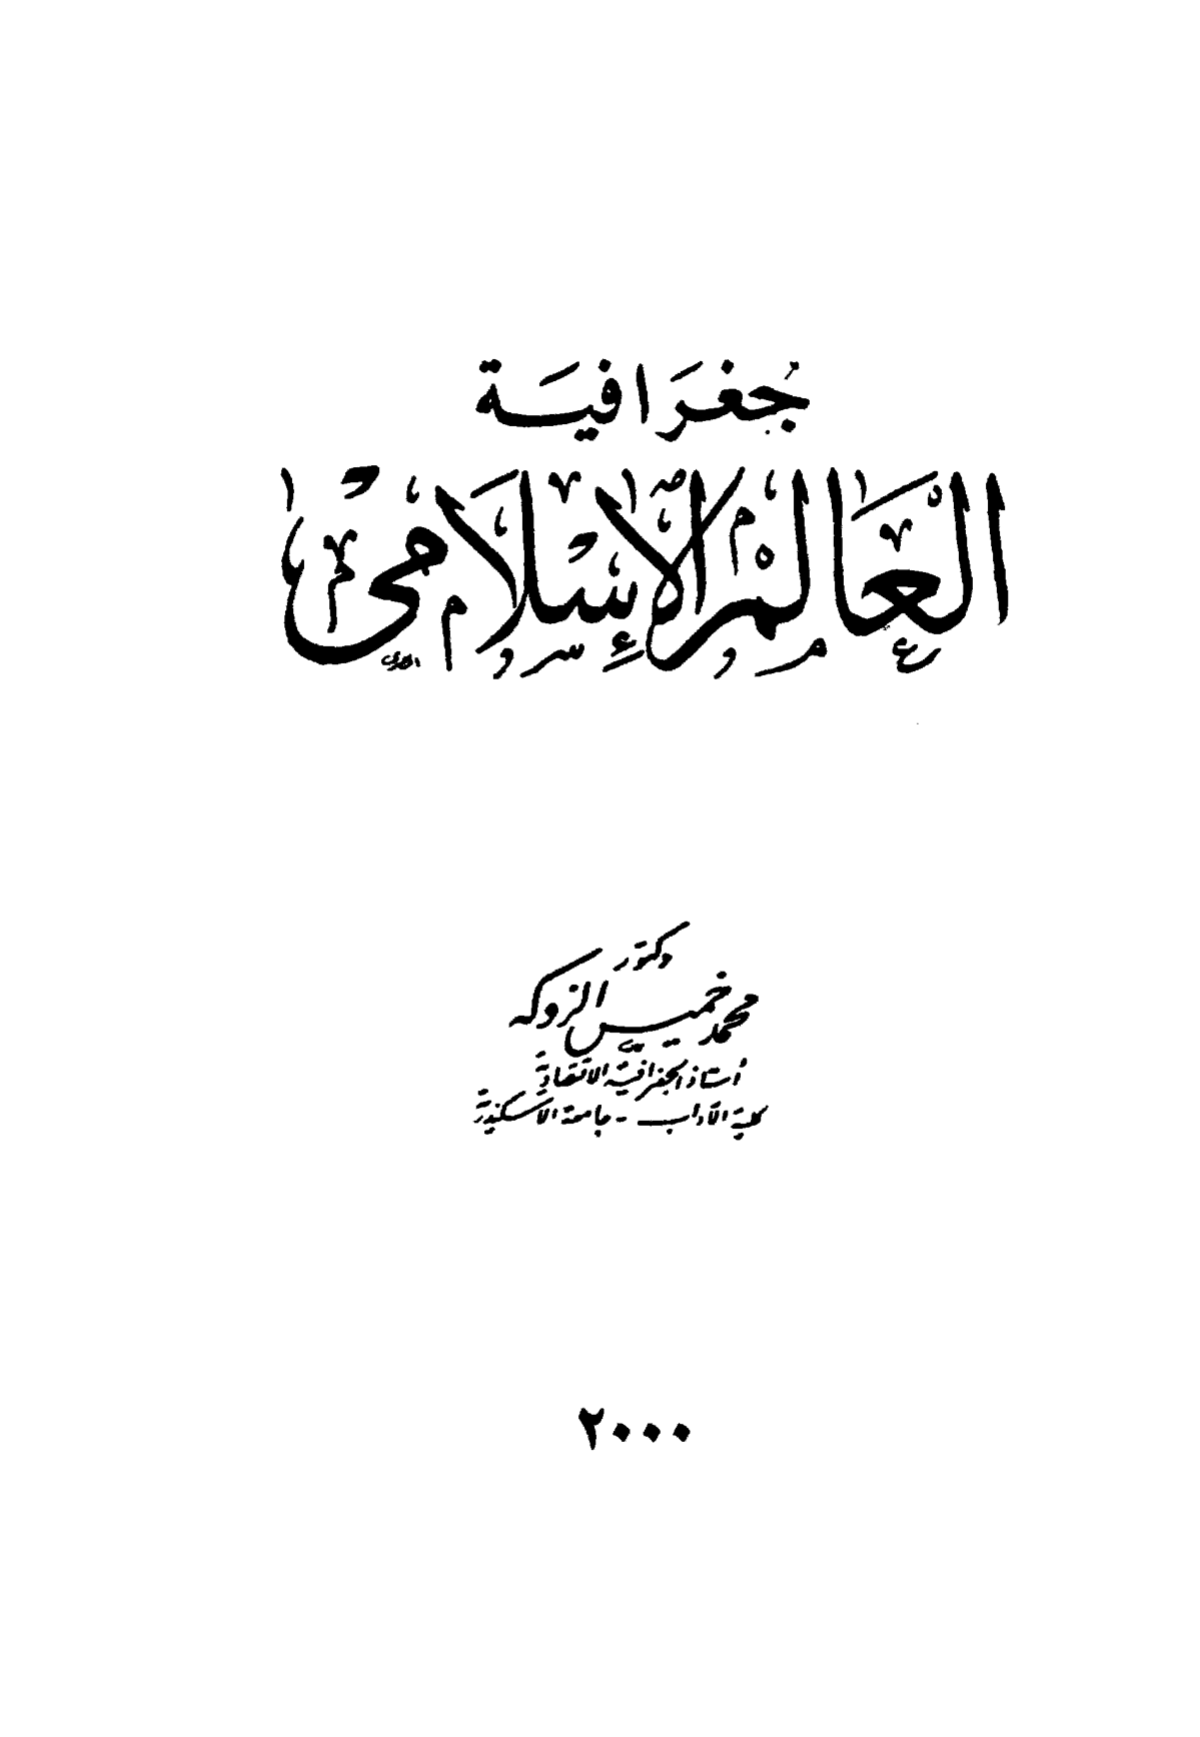 جغرافية
العالم الإسلامي
دكتور
محمد خميس الزوكه
أستاذ الجغرافية الاقتصادية
كلية الآداب - جامعة الاسكندرية
٢٠٠٠